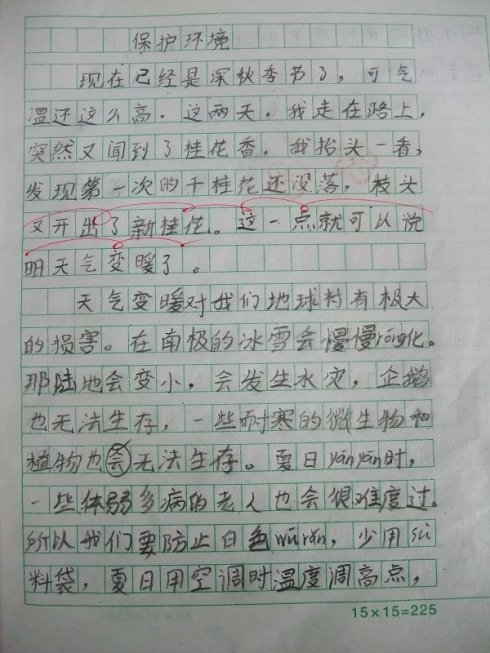 保护环境
现在已经是深秋季节了，可气
温还这么高。这两天，我走在路上，
突然又闻到了桂花香，我抬头一看，
发现第一次的干桂花还没落，枝头
又开出了新桂花。这一点就可以说
明天气变暖了。
天气变暖对我们地球村有极大
的损害。在南极的冰雪会慢慢róng化。
那陆地会变小，会发生水灾，企鹅
也无法生存，一些耐寒的微生物和
植物也会无法生存。夏日yányán时，
一些体弱多病的老人也会很难度过。
所以我们要防止白色wūrǎn，少用sù
料袋，夏日用空调时温度调高点，
15×15=225